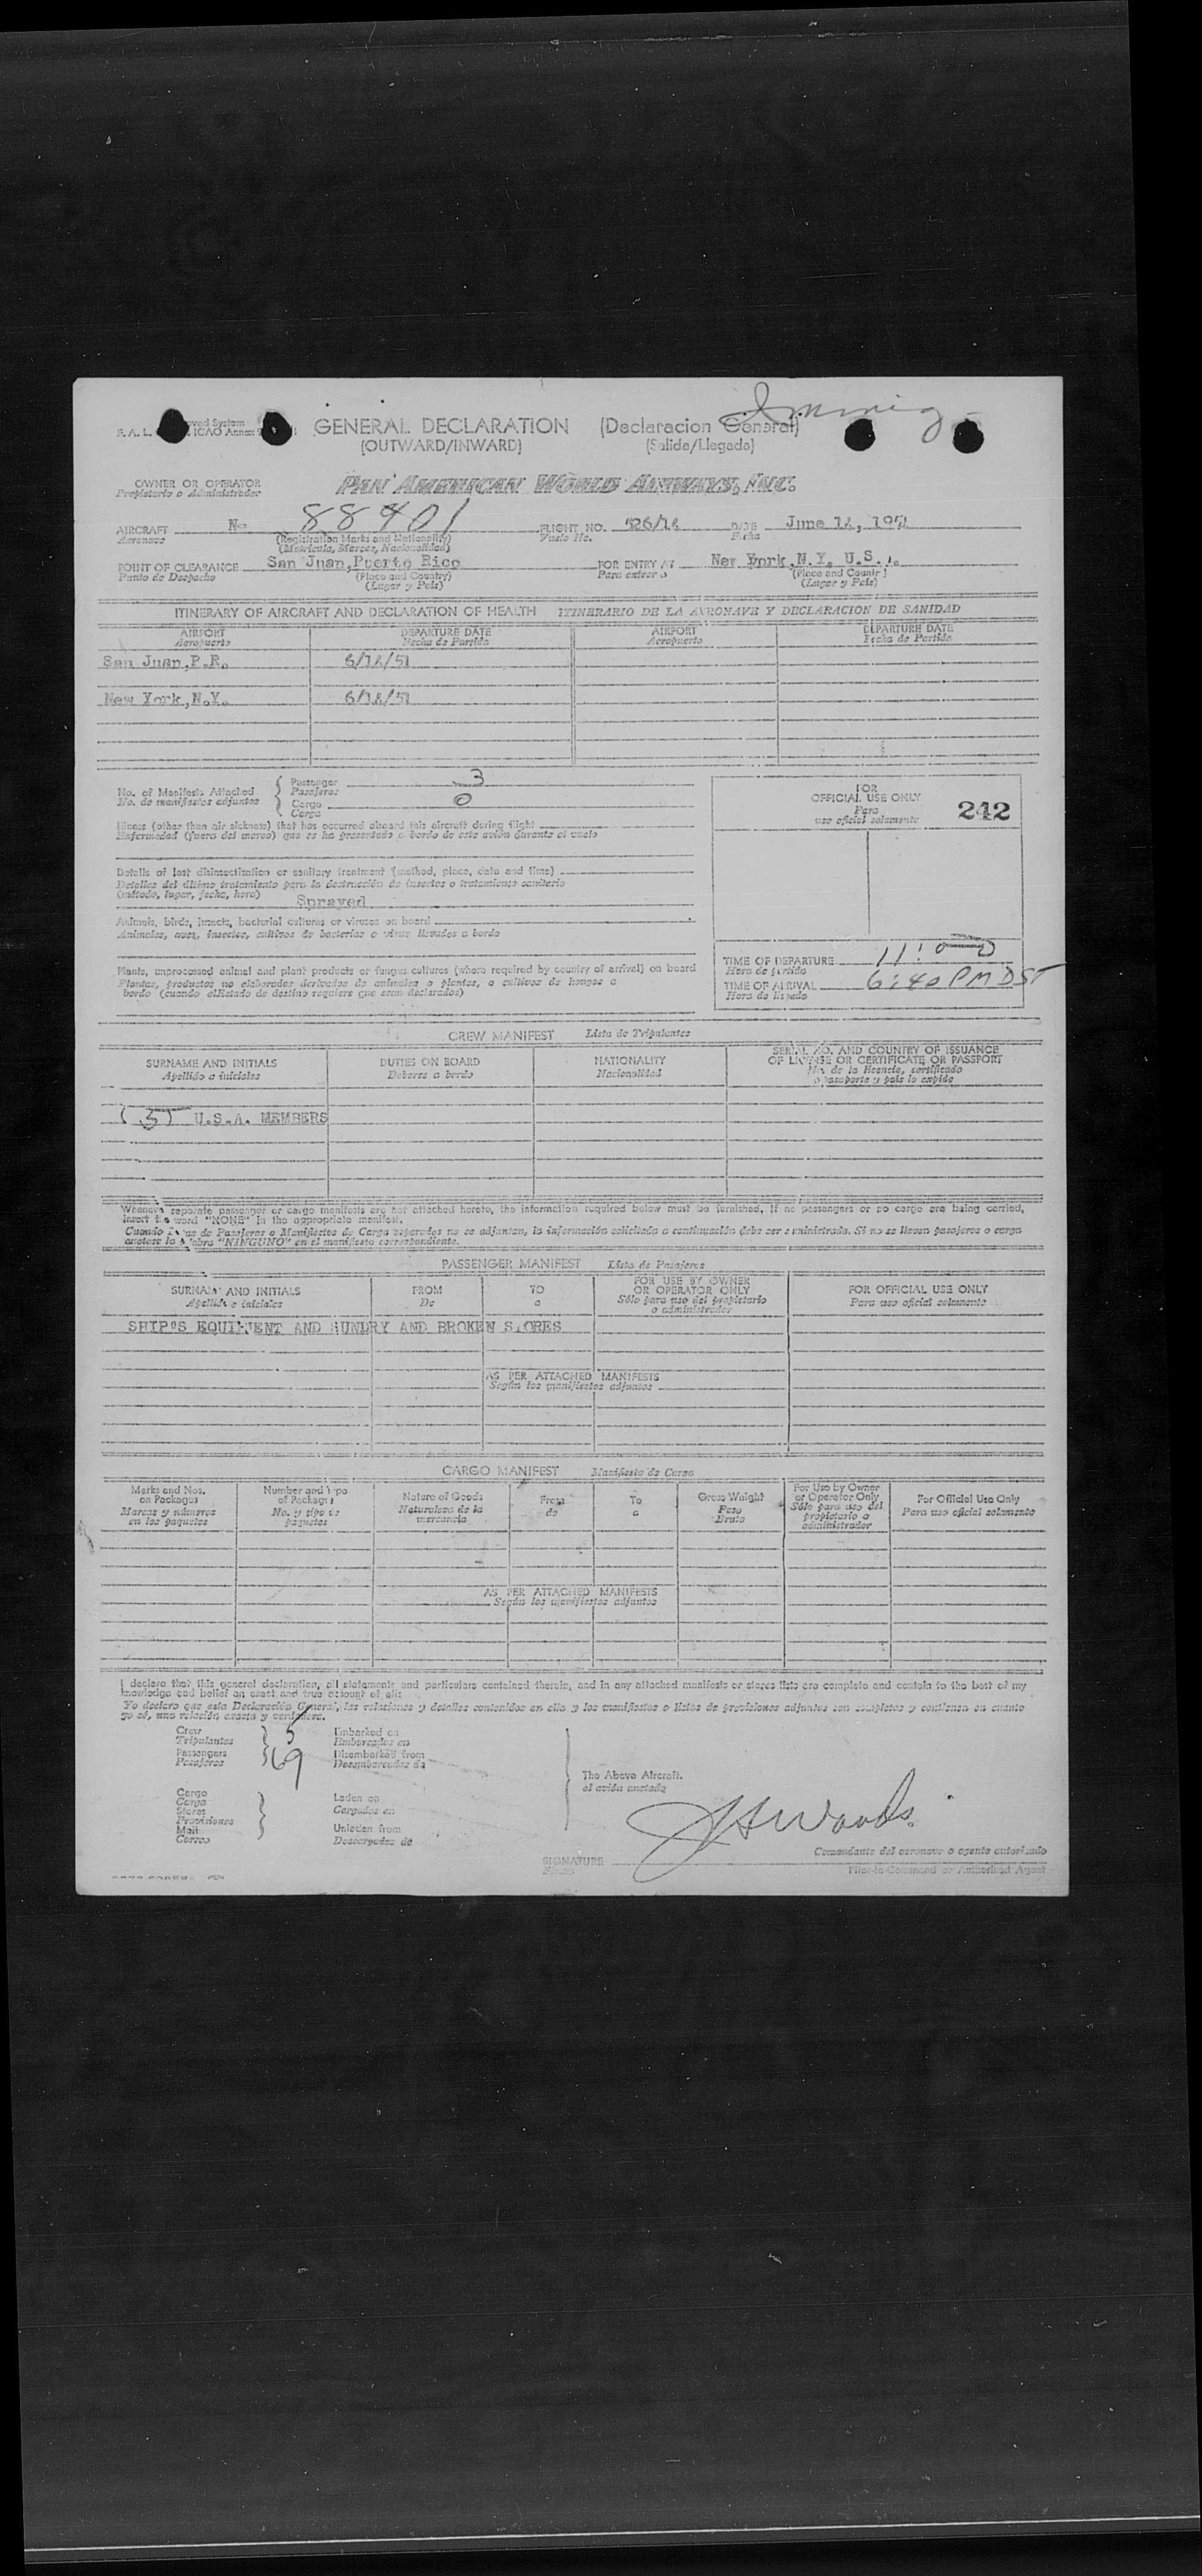 Immig-
GENERAL DECLARATION (Declaracion General)
(OUTWARD/INWARD) (Salida/Llegada)
OWNER OR OPERATOR
Propietario o Administrador
PAN AMERICAN WORLD AIRWAYS, INC.
AIRCRAFT N- 88901 FLIGHT NO. 526/12 DATE June 12, 1951
Aeronave (Registration Marks and Nationality) Vuelo No. Fecha
(Matricula, Marcas, Nacionalidad)
POINT OF CLEARANCE San Juan, Puerto Rico FOR ENTRY AT New York, N.Y. U.S.A.
Punto de Despacho (Place and Country) Para entrar a (Place and Country)
(Lugar y País) (Lugar y País)
ITINERARY OF AIRCRAFT AND DECLARATION OF HEALTH ITINERARIO DE LA AERONAVE Y DECLARACION DE SANIDAD
AIRPORT DEPARTURE DATE AIRPORT DEPARTURE DATE
Aeropuerto Fecha de Partida Aeropuerto Fecha de Partida
San Juan, P.R. 6/12/51
New York, N.Y. 6/12/51
No. of Manifests Attached
No. de manifiestos adjuntos
Passenger 3
Pasajeros
Cargo 0
Carga
FOR
OFFICIAL USE ONLY
Para
uso oficial solamente
242
Illness (other than air sickness) that has occurred aboard this aircraft during flight
Enfermedad (fuera del mareo) que se ha presentado a bordo de este avión durante el vuelo
Details of last disinsectisation or sanitary treatment (method, place, date and time)
Detalles del último tratamiento para la destrucción de insectos o tratamiento sanitario
(método, lugar, fecha, hora) Sprayed
Animals, birds, insects, bacterial cultures or viruses on board
Animales, aves, insectos, cultivos de bacterias o virus llevados a bordo
Plants, unprocessed animal and plant products or fungus cultures (where required by country of arrival) on board
Plantas, productos no elaborados derivados de animales o plantas, o cultivos de hongos a
bordo (cuando el Estado de destino requiere que sean declarados)
TIME OF DEPARTURE 11:00
Hora de partida
TIME OF ARRIVAL 6:40 PM DST
Hora de llegada
CREW MANIFEST Lista de Tripulantes
SURNAME AND INITIALS DUTIES ON BOARD NATIONALITY SERIAL NO. AND COUNTRY OF ISSUANCE
Apellido e iniciales Deberes a bordo Nacionalidad OF LICENSE OR CERTIFICATE OR PASSPORT
No. de la licencia, certificado
o pasaporte y país lo expide
(5) U.S.A. MEMBERS
Whenever separate passenger or cargo manifests are not attached hereto, the information required below must be furnished. If no passengers or no cargo are being carried,
insert the word "NONE" in the appropriate manifest.
Cuando Listas de Pasajeros o Manifiestos de Carga separados no se adjuntan, la información solicitada a continuación debe ser suministrada. Si no se llevan pasajeros o carga
anótese la palabra "NINGUNO" en el manifiesto correspondiente.
PASSENGER MANIFEST Lista de Pasajeros
SURNAME AND INITIALS FROM TO FOR USE BY OWNER FOR OFFICIAL USE ONLY
Apellido e iniciales De a OR OPERATOR ONLY Para uso oficial solamente
Sólo para uso del propietario
o administrador
SHIP'S EQUIPMENT AND SUNDRY AND BROKEN STORES
AS PER ATTACHED MANIFESTS
Según los manifiestos adjuntos
CARGO MANIFEST Manifiesto de Carga
Marks and Nos.
on Packages
Marcas y números
en los paquetes
Number and Type
of Packages
No. y tipo de
paquetes
Nature of Goods
Naturaleza de la
mercancía
From
de
To
a
Gross Weight
Peso
Bruto
For Use by Owner
or Operator Only
Sólo para uso del
propietario o
administrador
For Official Use Only
Para uso oficial solamente
AS PER ATTACHED MANIFESTS
Según los manifiestos adjuntos
I declare that this general declaration, all statements and particulars contained therein, and in any attached manifests or stores lists are complete and contain to the best of my
knowledge and belief an exact and true account of all:
Yo declaro que esta Declaración General, las relaciones y detalles contenidos en ella y los manifiestos o listas de provisiones adjuntos son completos y contienen en cuanto
yo sé, una relación exacta y verdadera.
Crew 5 Embarked on
Tripulantes Embarcados en
Passengers 69 Disembarked from
Pasajeros Desembarcados de
The Above Aircraft.
el avión anotado
Cargo
Carga
Stores
Provisiones
Mail
Correo
Laden on
Cargados en
Unladen from
Descargados de
SIGNATURE J H Woods
Comandante del aeronave o agente autorizado
Pilot-in-Command or Authorized Agent